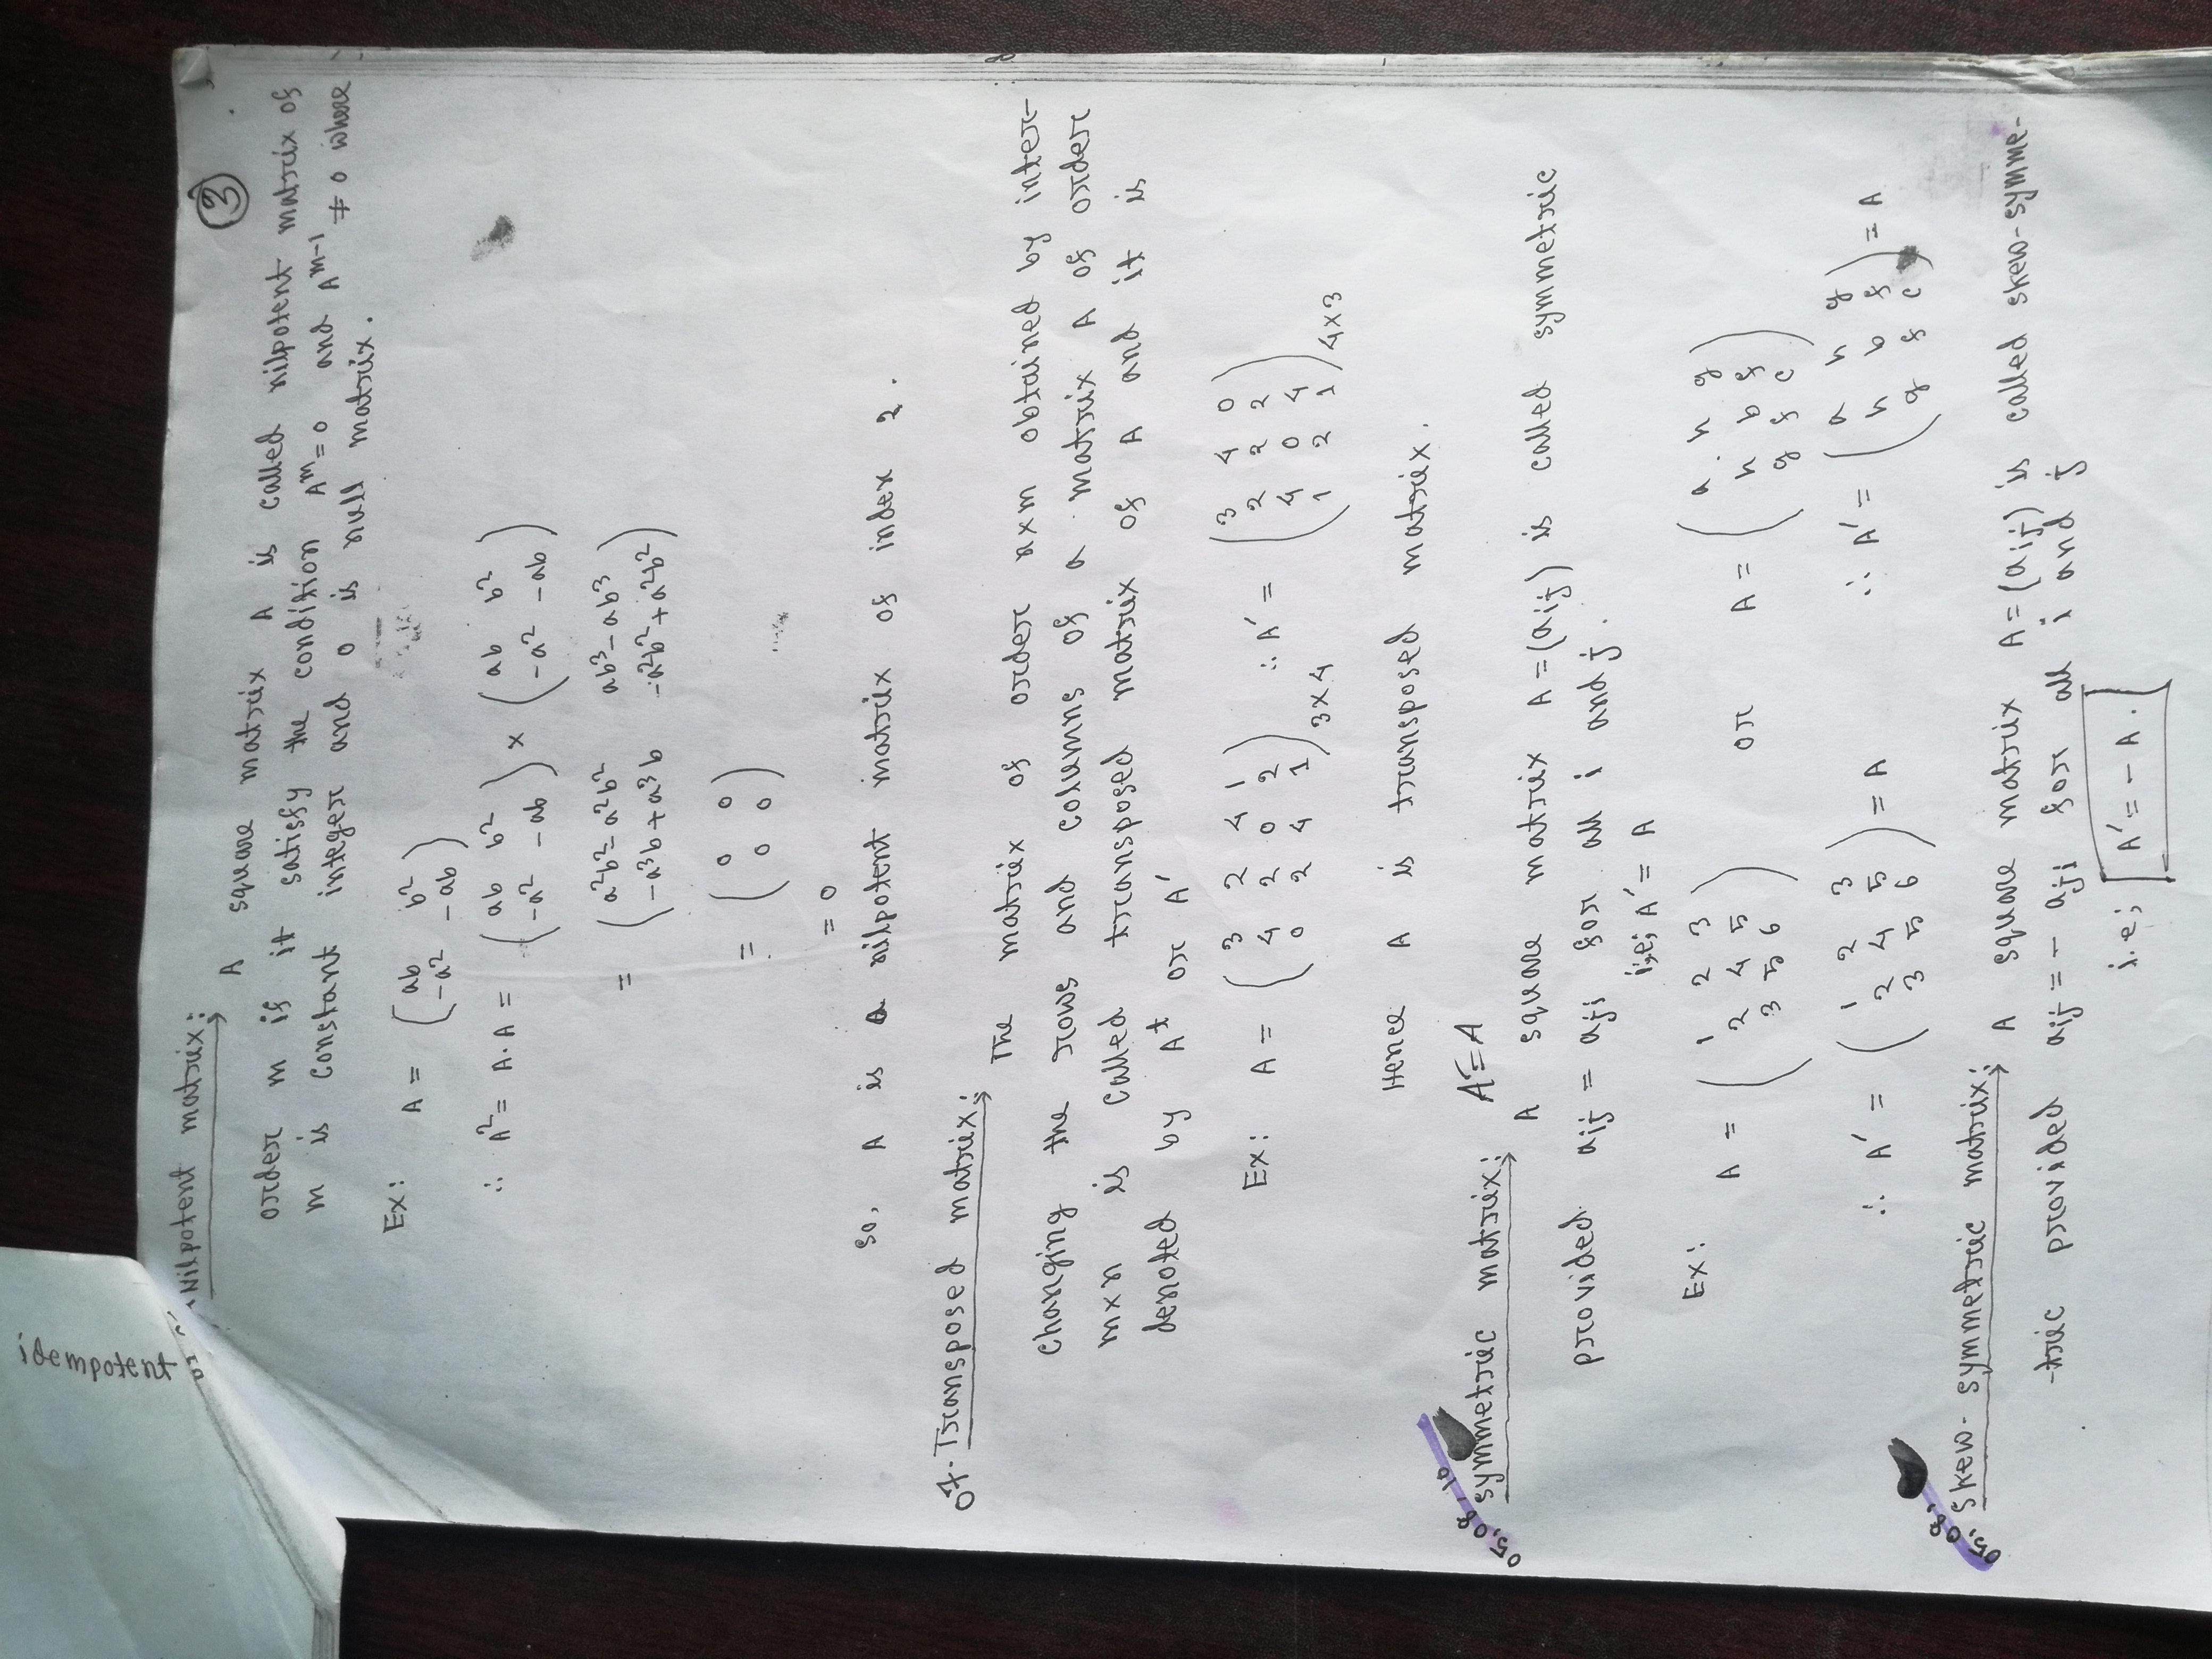 idempotent
Nilpotent matrix:
3
A square matrix A is called nilpotent matrix of
order m if it satisfy the condition A^m = 0 and A^m-1 ≠ 0 where
m is constant integer and 0 is null matrix.
Ex: A = ( ab b² ; -a² -ab )
∴ A² = A.A = ( ab b² ; -a² -ab ) × ( ab b² ; -a² -ab )
= ( a²b² - a²b² ab³ - ab³ ; -a³b + a³b -a²b² + a²b² )
= ( 0 0 ; 0 0 )
= 0
so, A is a nilpotent matrix of index 2.
07. Transposed matrix:
The matrix of order n×m obtained by inter-
changing the rows and columns of a matrix A of order
m×n is called transposed matrix of A and it is
denoted by A^t or A'
Ex: A = ( 3 2 4 1 ; 4 2 0 2 ; 0 2 4 1 ) 3×4 ∴ A' = ( 3 4 0 ; 2 2 2 ; 4 0 4 ; 1 2 1 ) 4×3
Hence A is transposed matrix.
05, 08, 10
symmetric matrix: A'=A
A square matrix A = (aij) is called symmetric
provided aij = aji for all i and j.
i;e; A' = A
Ex: A = ( 1 2 3 ; 2 4 5 ; 3 5 6 ) or A = ( a h g ; h b f ; g f c )
∴ A' = ( 1 2 3 ; 2 4 5 ; 3 5 6 ) = A ∴ A' = ( a h g ; h b f ; g f c ) = A
05, 08,
skew- symmetric matrix:
A square matrix A = (aij) is called skew-symme-
-tric provided aij = - aji for all i and j
i.e; A' = - A.